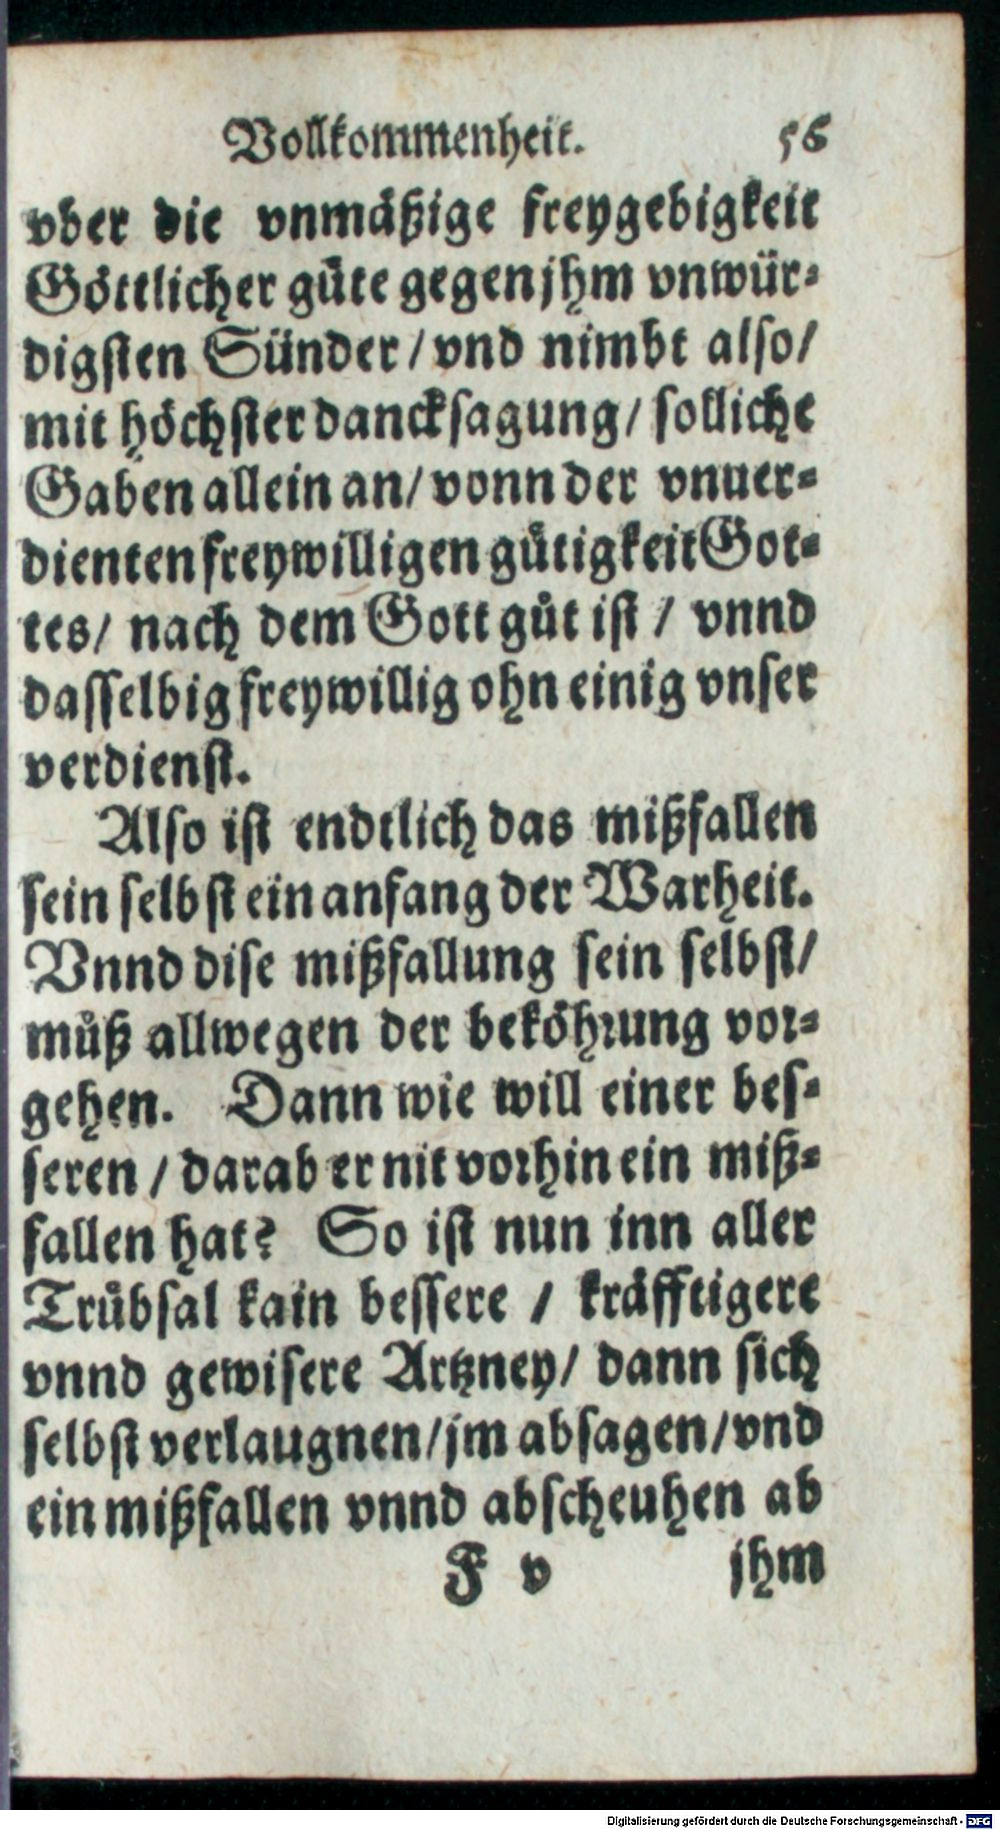 Vollkommenheit. 56
vber die vnmäßige freygebigkeit
Göttlicher gůte gegen jhm vnwür-
digsten Sünder / vnd nimbt also /
mit höchster dancksagung / solliche
Gaben allein an / vonn der vnuer-
dienten freywilligen gůtigkeit Got-
tes / nach dem Gott gůt ist / vnnd
dasselbig freywillig ohn einig vnser
verdienst.
Also ist endtlich das mißfallen
sein selbst ein anfang der Warheit.
Vnnd dise mißfallung sein selbst /
můß allwegen der beköhrung vor-
gehen. Dann wie will einer bes-
seren / darab er nit vorhin ein miß-
fallen hat? So ist nun inn aller
Trůbsal kain bessere / kräfftigere
vnnd gewisere Artzney / dann sich
selbst verlaugnen / jm absagen / vnd
ein mißfallen vnnd abscheuhen ab
F v jhm
Digitalisierung gefördert durch die Deutsche Forschungsgemeinschaft - DFG